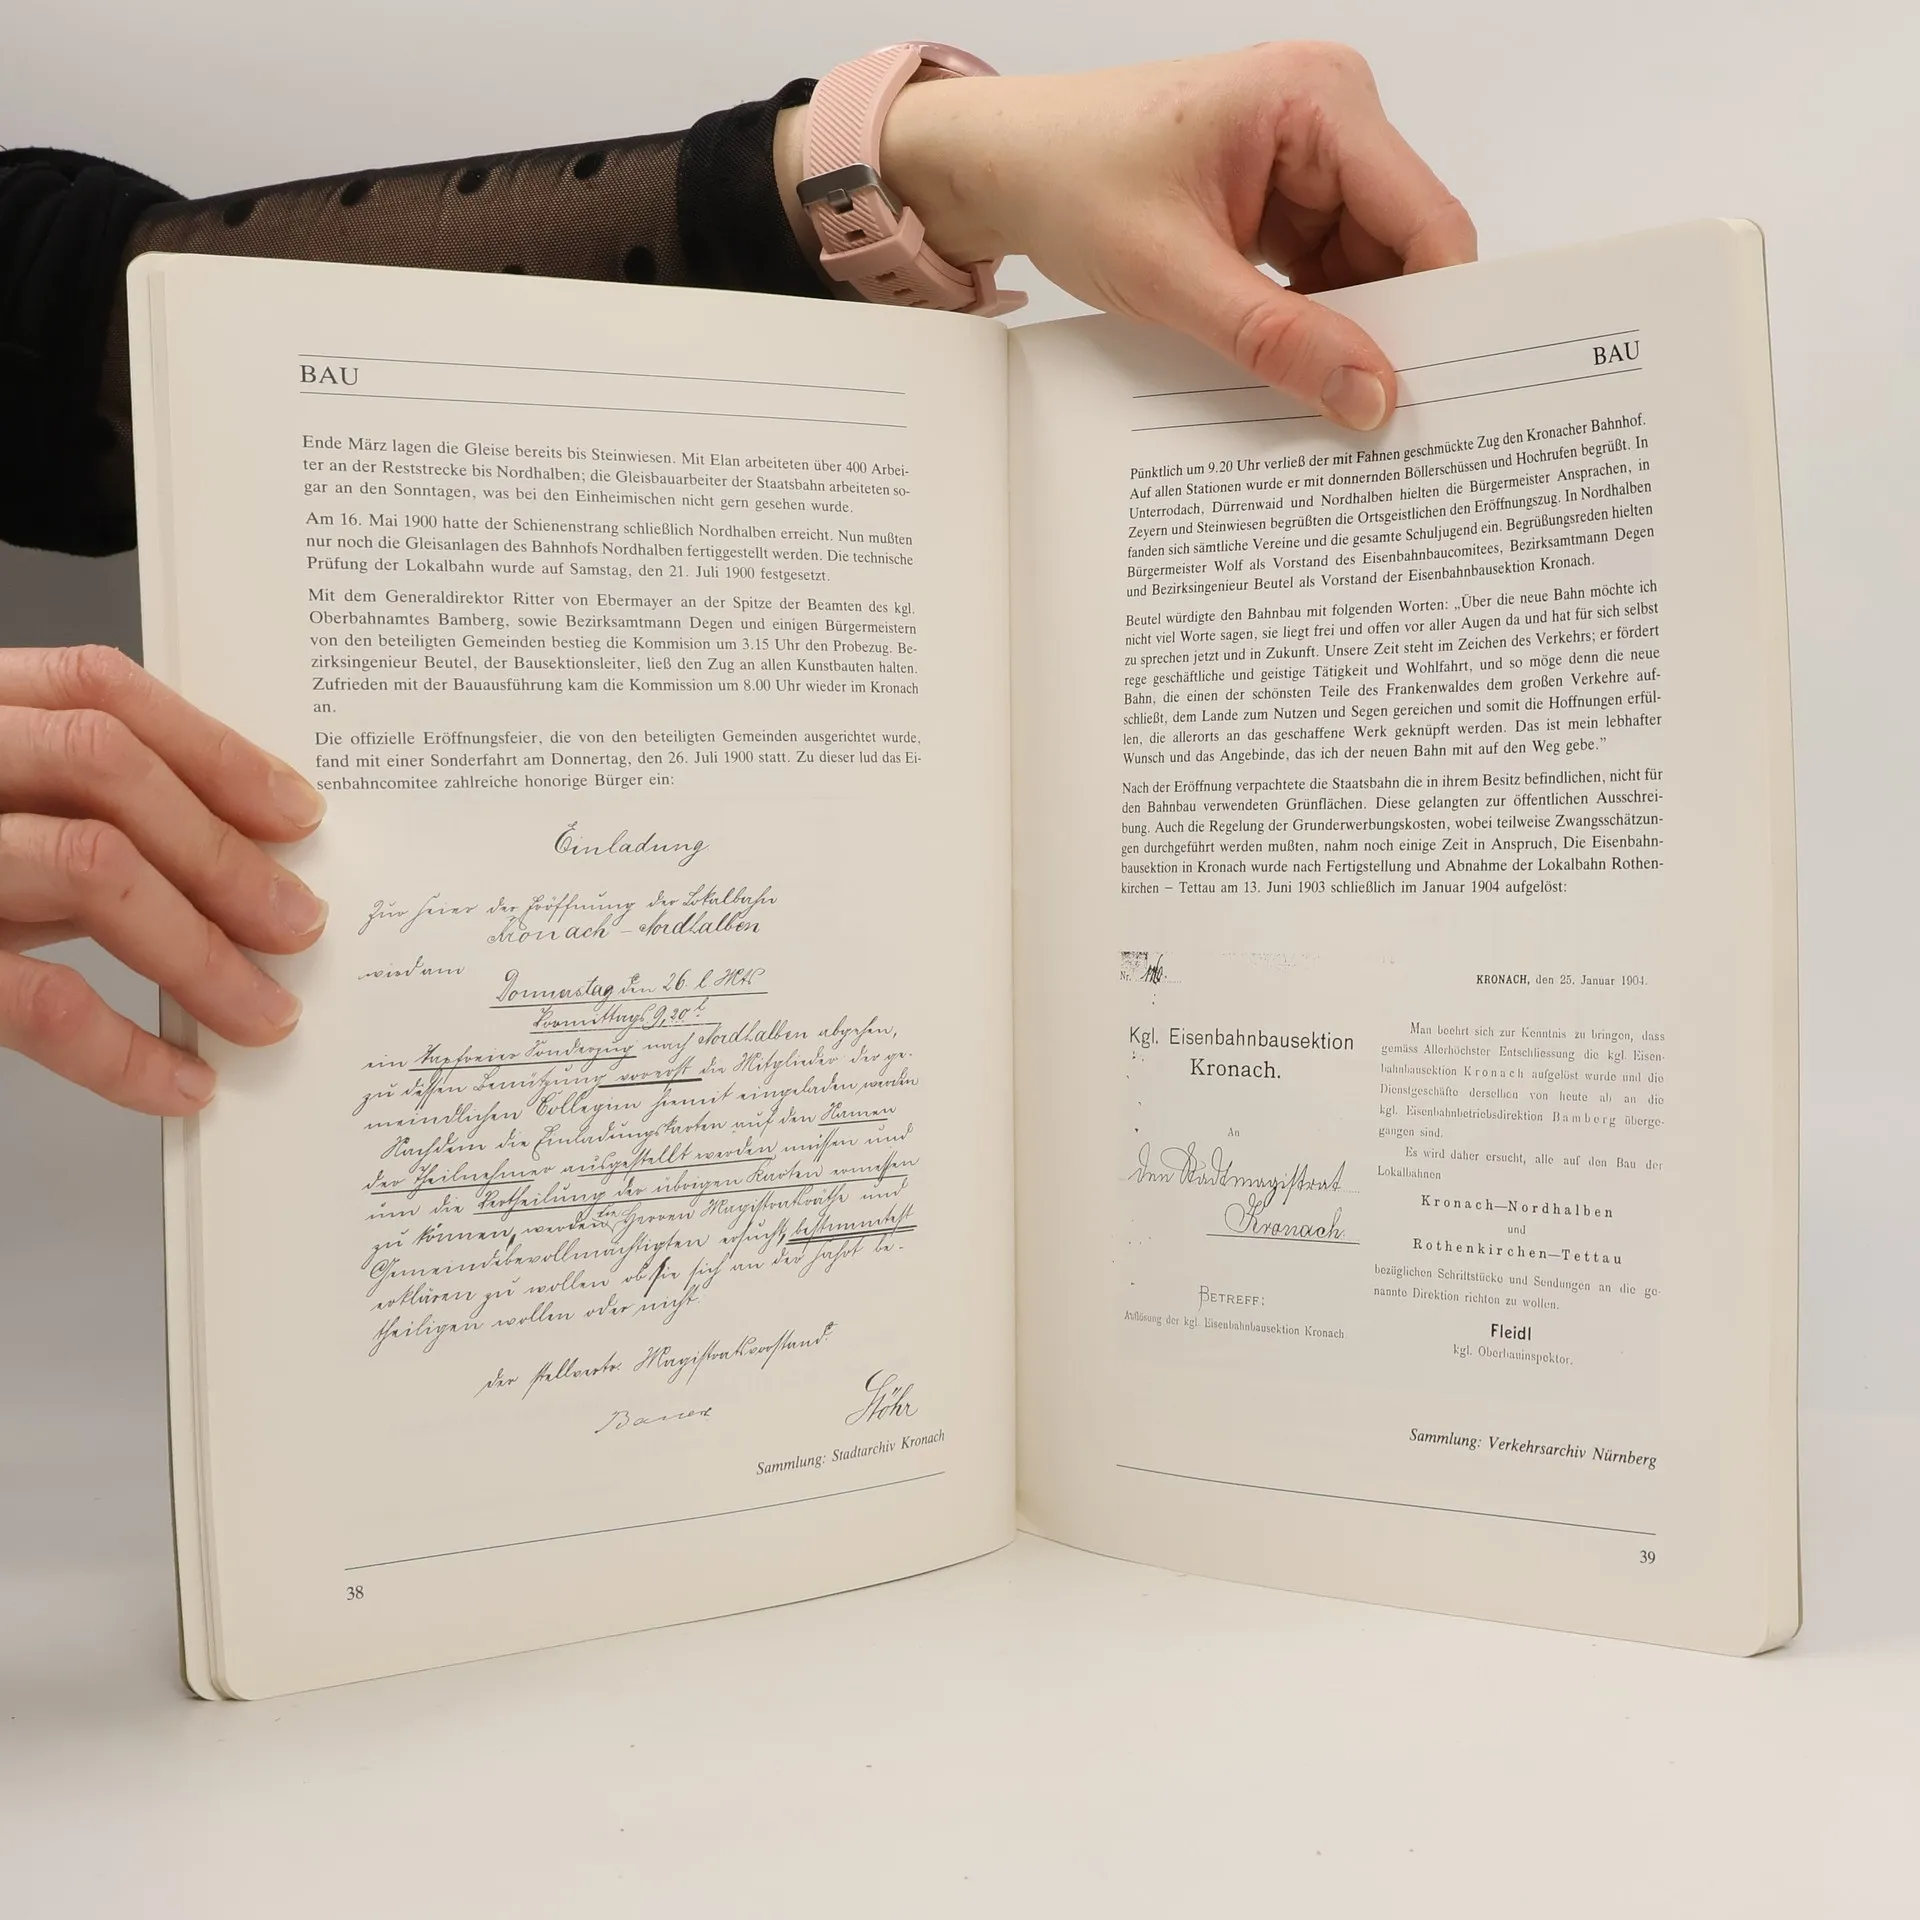 BAU
Ende März lagen die Gleise bereits bis Steinwiesen. Mit Elan arbeiteten über 400 Arbei-
ter an der Reststrecke bis Nordhalben; die Gleisbauarbeiter der Staatsbahn arbeiteten so-
gar an den Sonntagen, was bei den Einheimischen nicht gern gesehen wurde.
Am 16. Mai 1900 hatte der Schienenstrang schließlich Nordhalben erreicht. Nun mußten
nur noch die Gleisanlagen des Bahnhofs Nordhalben fertiggestellt werden. Die technische
Prüfung der Lokalbahn wurde auf Samstag, den 21. Juli 1900 festgesetzt.
Mit dem Generaldirektor Ritter von Ebermayer an der Spitze der Beamten des kgl.
Oberbahnamtes Bamberg, sowie Bezirksamtmann Degen und einigen Bürgermeistern
von den beteiligten Gemeinden bestieg die Kommision um 3.15 Uhr den Probezug. Be-
zirksingenieur Beutel, der Bausektionsleiter, ließ den Zug an allen Kunstbauten halten.
Zufrieden mit der Bauausführung kam die Kommission um 8.00 Uhr wieder im Kronach
an.
Die offizielle Eröffnungsfeier, die von den beteiligten Gemeinden ausgerichtet wurde,
fand mit einer Sonderfahrt am Donnertag, den 26. Juli 1900 statt. Zu dieser lud das Ei-
senbahncomitee zahlreiche honorige Bürger ein:
Einladung
Zur Feier der Eröffnung der Lokalbahn
Kronach – Nordhalben
wird am
Donnerstag den 26. l. Mts
Vormittags 9,20
ein Sonderzug nach Nordhalben abgehen,
zu dessen Benützung vorerst die Mitglieder der ge-
meindlichen Collegien hiemit eingeladen werden
Nachdem die Einladungskarten auf den Namen
der Theilnehmer ausgestellt werden müssen und
um die Vertheilung der übrigen Karten ermessen
zu können, werden die Herren Magistratsräthe und
Gemeindebevollmächtigten ersucht, bestimmtest
erklären zu wollen ob Sie sich an der Fahrt be-
theiligen wollen oder nicht.
Der stellvertr. Magistratsvorstand.
Stöhr
Sammlung: Stadtarchiv Kronach
38
BAU
Pünktlich um 9.20 Uhr verließ der mit Fahnen geschmückte Zug den Kronacher Bahnhof.
Auf allen Stationen wurde er mit donnernden Böllerschüssen und Hochrufen begrüßt. In
Unterrodach, Dürrenwaid und Nordhalben hielten die Bürgermeister Ansprachen, in
Zeyern und Steinwiesen begrüßten die Ortsgeistlichen den Eröffnungszug. In Nordhalben
fanden sich sämtliche Vereine und die gesamte Schuljugend ein. Begrüßungsreden hielten
Bürgermeister Wolf als Vorstand des Eisenbahnbaucomitees, Bezirksamtmann Degen
und Bezirksingenieur Beutel als Vorstand der Eisenbahnbausektion Kronach.
Beutel würdigte den Bahnbau mit folgenden Worten: „Über die neue Bahn möchte ich
nicht viel Worte sagen, sie liegt frei und offen vor aller Augen da und hat für sich selbst
zu sprechen jetzt und in Zukunft. Unsere Zeit steht im Zeichen des Verkehrs; er fördert
rege geschäftliche und geistige Tätigkeit und Wohlfahrt, und so möge denn die neue
Bahn, die einen der schönsten Teile des Frankenwaldes dem großen Verkehre auf-
schließt, dem Lande zum Nutzen und Segen gereichen und somit die Hoffnungen erfül-
len, die allerorts an das geschaffene Werk geknüpft werden. Das ist mein lebhafter
Wunsch und das Angebinde, das ich der neuen Bahn mit auf den Weg gebe.”
Nach der Eröffnung verpachtete die Staatsbahn die in ihrem Besitz befindlichen, nicht für
den Bahnbau verwendeten Grünflächen. Diese gelangten zur öffentlichen Ausschrei-
bung. Auch die Regelung der Grunderwerbungskosten, wobei teilweise Zwangsschätzun-
gen durchgeführt werden mußten, nahm noch einige Zeit in Anspruch, Die Eisenbahn-
bausektion in Kronach wurde nach Fertigstellung und Abnahme der Lokalbahn Rothen-
kirchen – Tettau am 13. Juni 1903 schließlich im Januar 1904 aufgelöst:
Nr.
KRONACH, den 25. Januar 1904.
Kgl. Eisenbahnbausektion
Kronach.
An
den Stadtmagistrat
Kronach.
BETREFF:
Auflösung der kgl. Eisenbahnbausektion Kronach
Man beehrt sich zur Kenntnis zu bringen, dass
gemäss Allerhöchster Entschliessung die kgl. Eisen-
bahnbausektion Kronach aufgelöst wurde und die
Dienstgeschäfte derselben von heute ab an die
kgl. Eisenbahnbetriebsdirektion Bamberg überge-
gangen sind.
Es wird daher ersucht, alle auf den Bau der
Lokalbahnen
Kronach—Nordhalben
und
Rothenkirchen—Tettau
bezüglichen Schriftstücke und Sendungen an die ge-
nannte Direktion richten zu wollen.
Fleidl
kgl. Oberbauinspektor.
Sammlung: Verkehrsarchiv Nürnberg
39